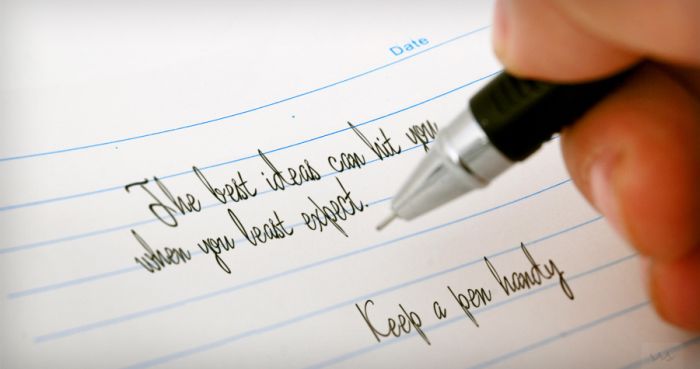 Date
The best ideas can hit you
when you least expect.
Keep a pen handy